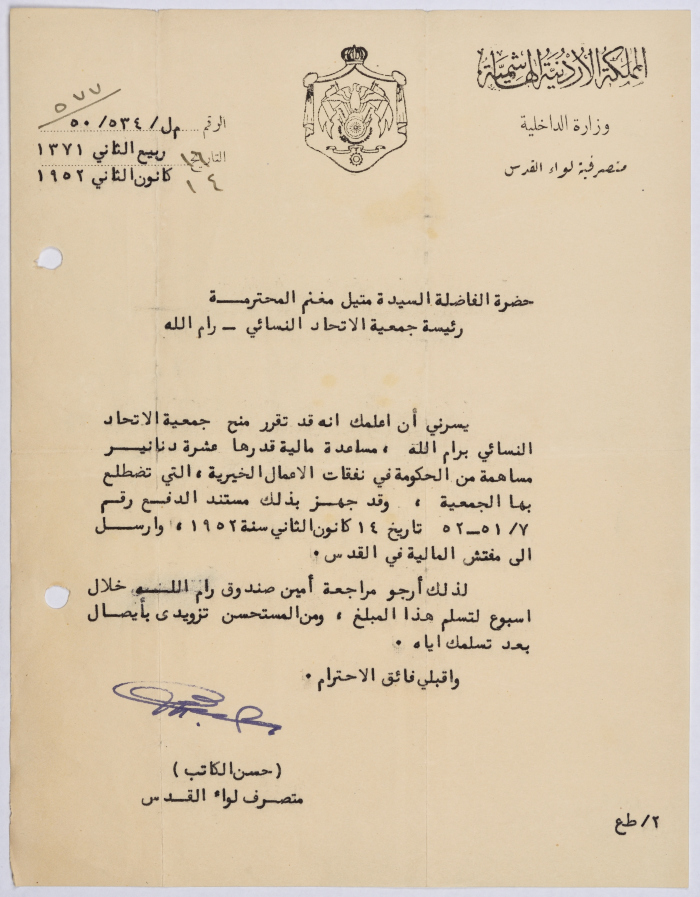 المملكة الأردنية الهاشمية
وزارة الداخلية
متصرفية لواء القدس
٥٧٧
الرقم م ل/٥٣٤/٥٠
التاريخ ١٦ ربيع الثاني ١٣٧١
١٤ كانون الثاني ١٩٥٢
حضرة الفاضلة السيدة متيل مغنم المحترمـــة
رئيسة جمعية الاتحاد النسائي – رام الله
يسرني أن اعلمك انه قد تقرر منح جمعية الاتحاد
النسائي برام الله ، مساعدة مالية قدرها عشرة دنانيـــر
مساهمة من الحكومة في نفقات الاعمال الخيرية ، التي تضطلع
بها الجمعية ، وقد جهـز بذلك مستند الدفـع رقم
٥٢–٥١/٧ تاريخ ١٤ كانون الثاني سنة ١٩٥٢ ، وارســل
الى مفتش المالية في القدس ٠
لذلك أرجو مراجعة أمين صندوق رام اللـــه خلال
اسبوع لتسلم هذا المبلغ ، ومن المستحسن تزويدى بأيصال
بعد تسلمك اياه ٠
واقبلي فائق الاحترام ٠
(حسن الكاتب)
متصرف لواء القـدس
٢/طع